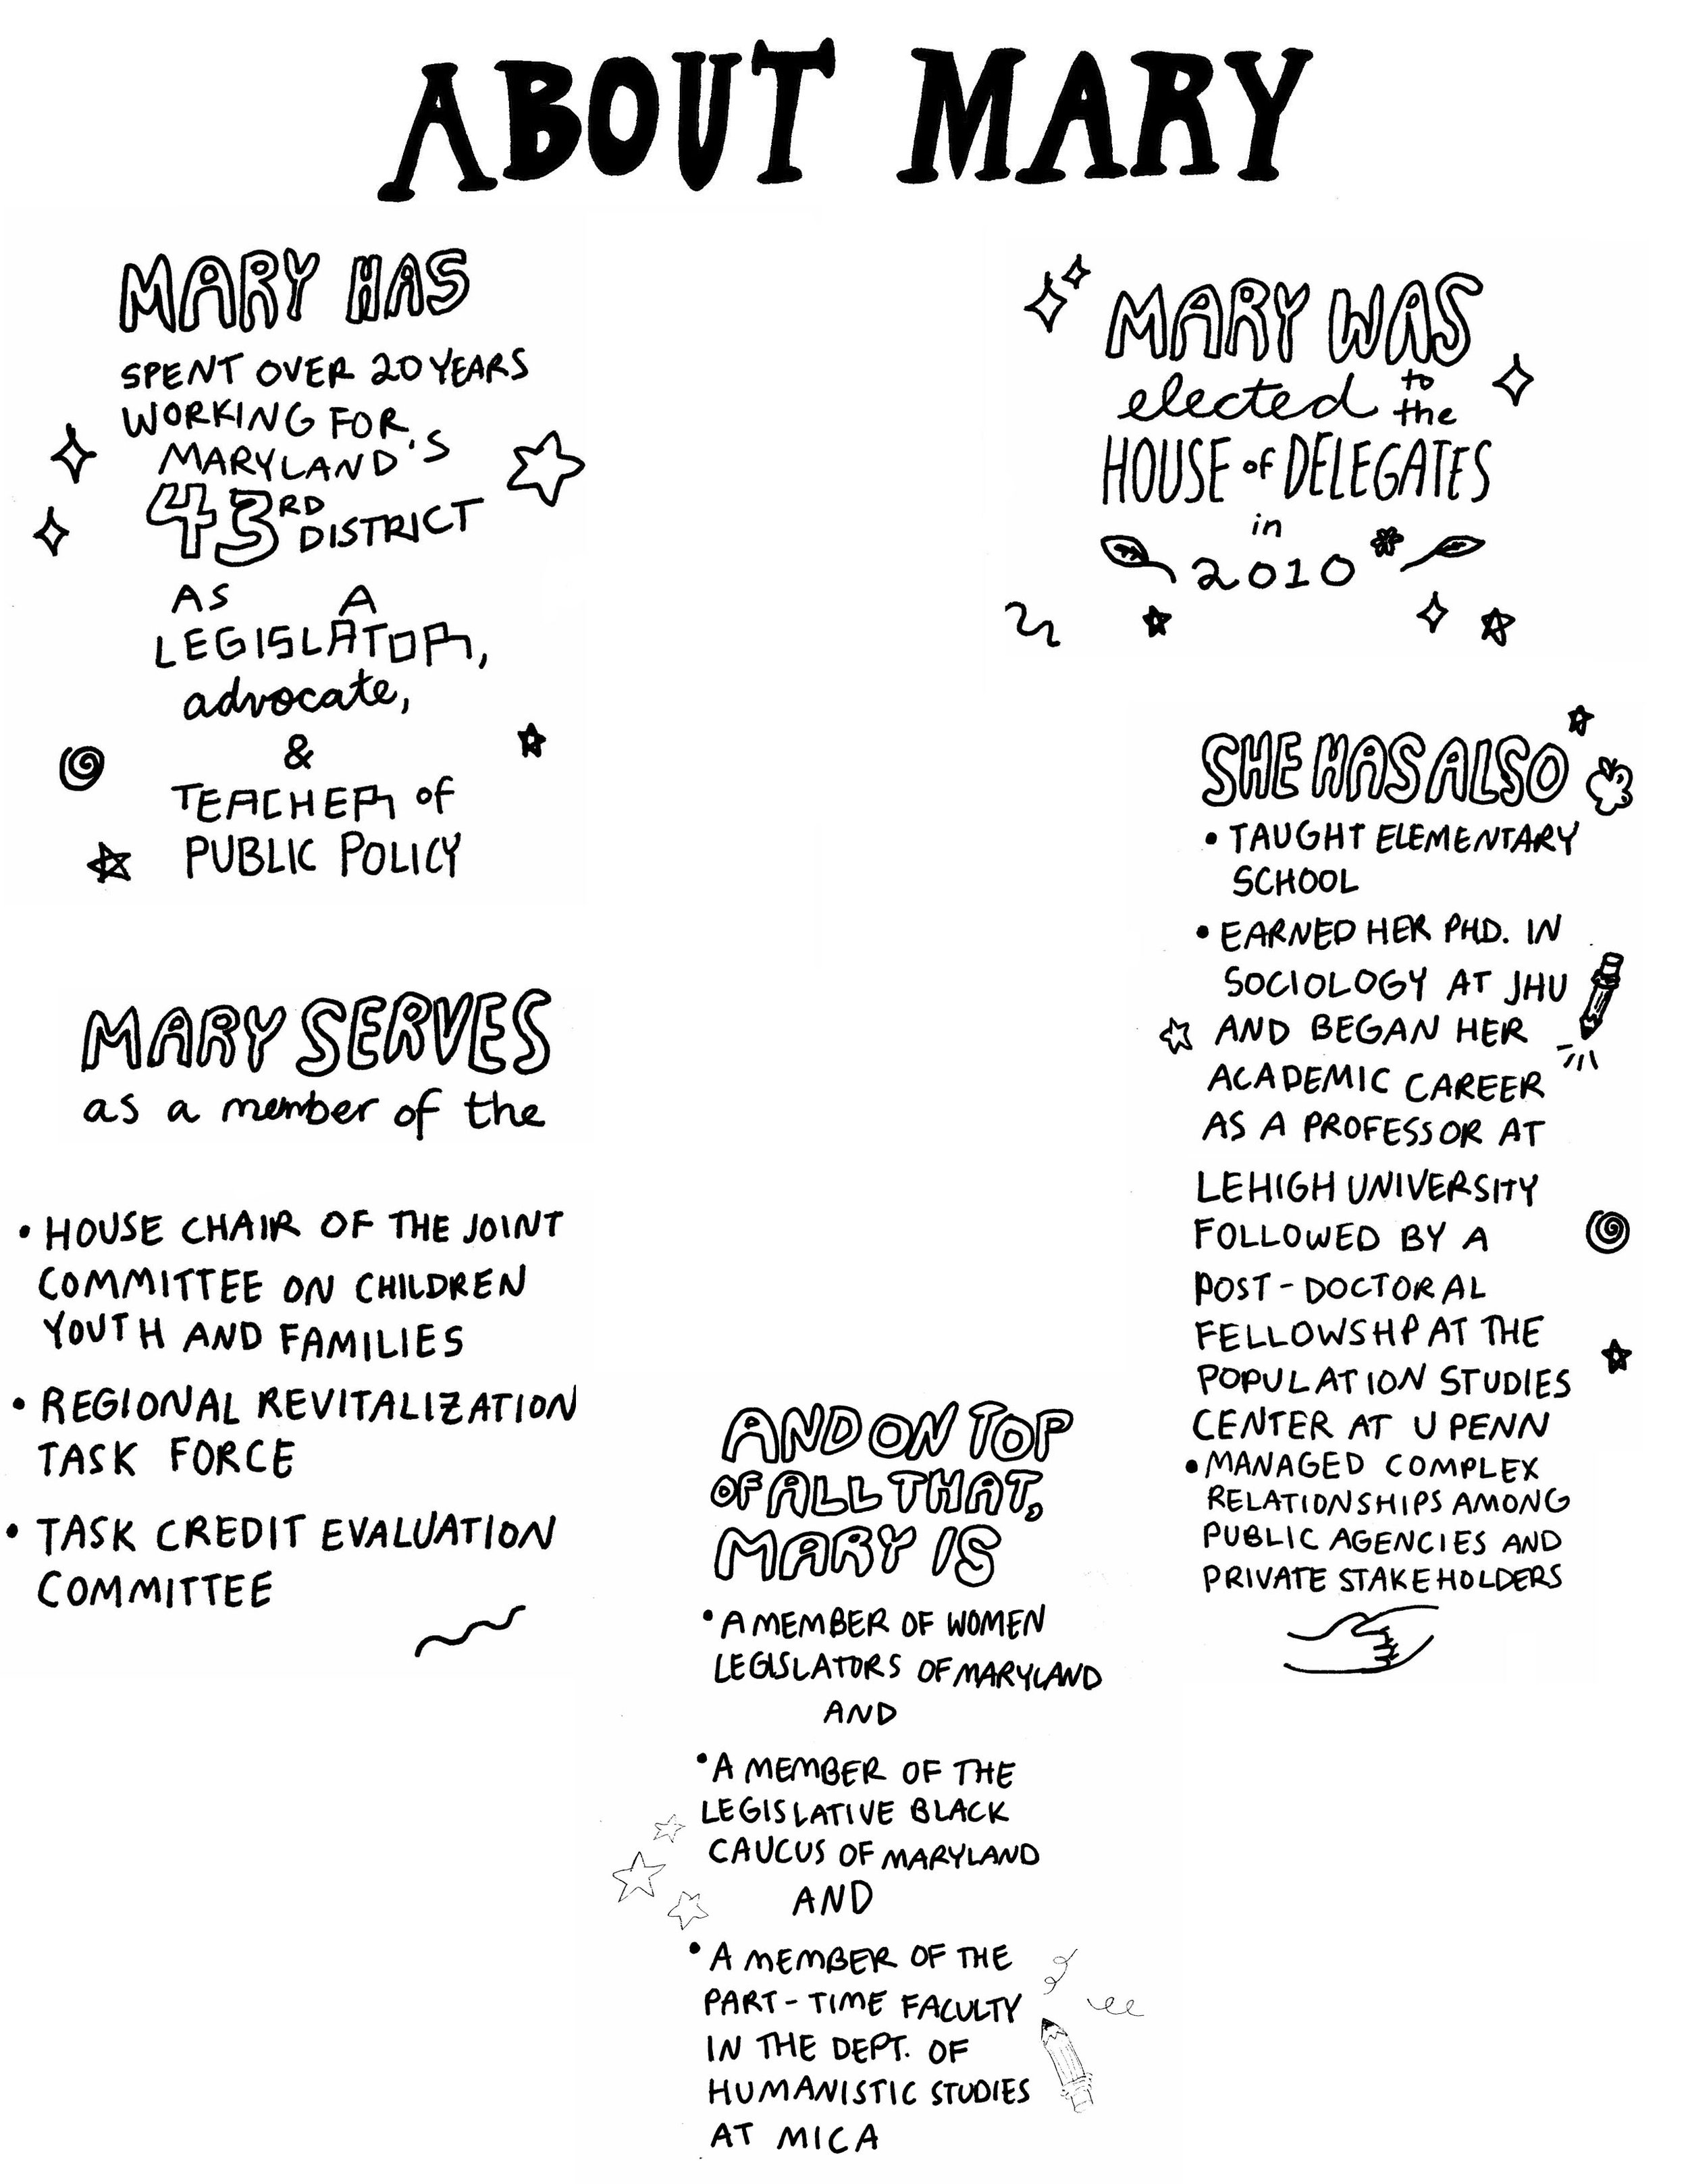 ABOUT MARY
MARY HAS
SPENT OVER 20 YEARS
WORKING FOR
MARYLAND'S
43RD DISTRICT
AS A
LEGISLATOR,
advocate,
&
TEACHER of
PUBLIC POLICY
MARY WAS
elected to the
HOUSE of DELEGATES
in
2010
SHE HAS ALSO
• TAUGHT ELEMENTARY
SCHOOL
• EARNED HER PHD. IN
SOCIOLOGY AT JHU
AND BEGAN HER
ACADEMIC CAREER
AS A PROFESSOR AT
LEHIGH UNIVERSITY
FOLLOWED BY A
POST-DOCTORAL
FELLOWSHP AT THE
POPULATION STUDIES
CENTER AT U PENN
• MANAGED COMPLEX
RELATIONSHIPS AMONG
PUBLIC AGENCIES AND
PRIVATE STAKEHOLDERS
MARY SERVES
as a member of the
• HOUSE CHAIR OF THE JOINT
COMMITTEE ON CHILDREN
YOUTH AND FAMILIES
• REGIONAL REVITALIZATION
TASK FORCE
• TASK CREDIT EVALUATION
COMMITTEE
AND ON TOP
OF ALL THAT,
MARY IS
• A MEMBER OF WOMEN
LEGISLATORS OF MARYLAND
AND
• A MEMBER OF THE
LEGISLATIVE BLACK
CAUCUS OF MARYLAND
AND
• A MEMBER OF THE
PART-TIME FACULTY
IN THE DEPT. OF
HUMANISTIC STUDIES
AT MICA